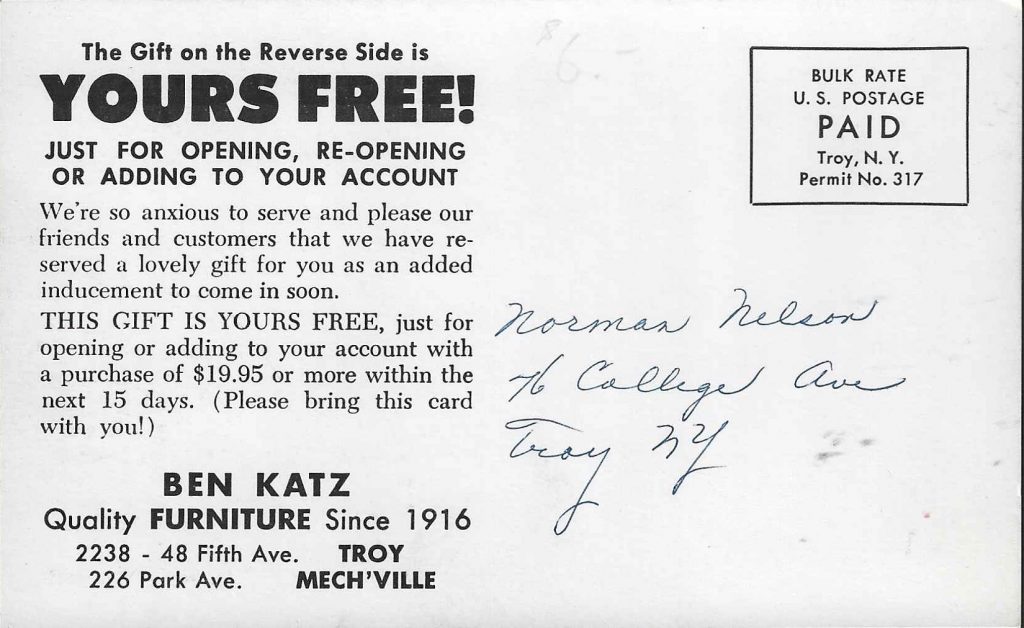 The Gift on the Reverse Side is
YOURS FREE!
JUST FOR OPENING, RE-OPENING
OR ADDING TO YOUR ACCOUNT
We're so anxious to serve and please our
friends and customers that we have re-
served a lovely gift for you as an added
inducement to come in soon.
THIS GIFT IS YOURS FREE, just for
opening or adding to your account with
a purchase of $19.95 or more within the
next 15 days. (Please bring this card
with you!)
BEN KATZ
Quality FURNITURE Since 1916
2238 - 48 Fifth Ave. TROY
226 Park Ave. MECH'VILLE
$6.-
BULK RATE
U. S. POSTAGE
PAID
Troy, N. Y.
Permit No. 317
Norman Nelson
76 College Ave
Troy NY